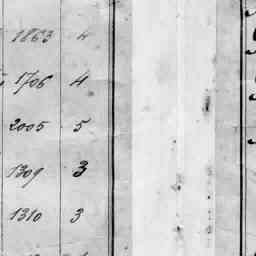 1863 4
1706 4
2005 5
1309 3
1310 3